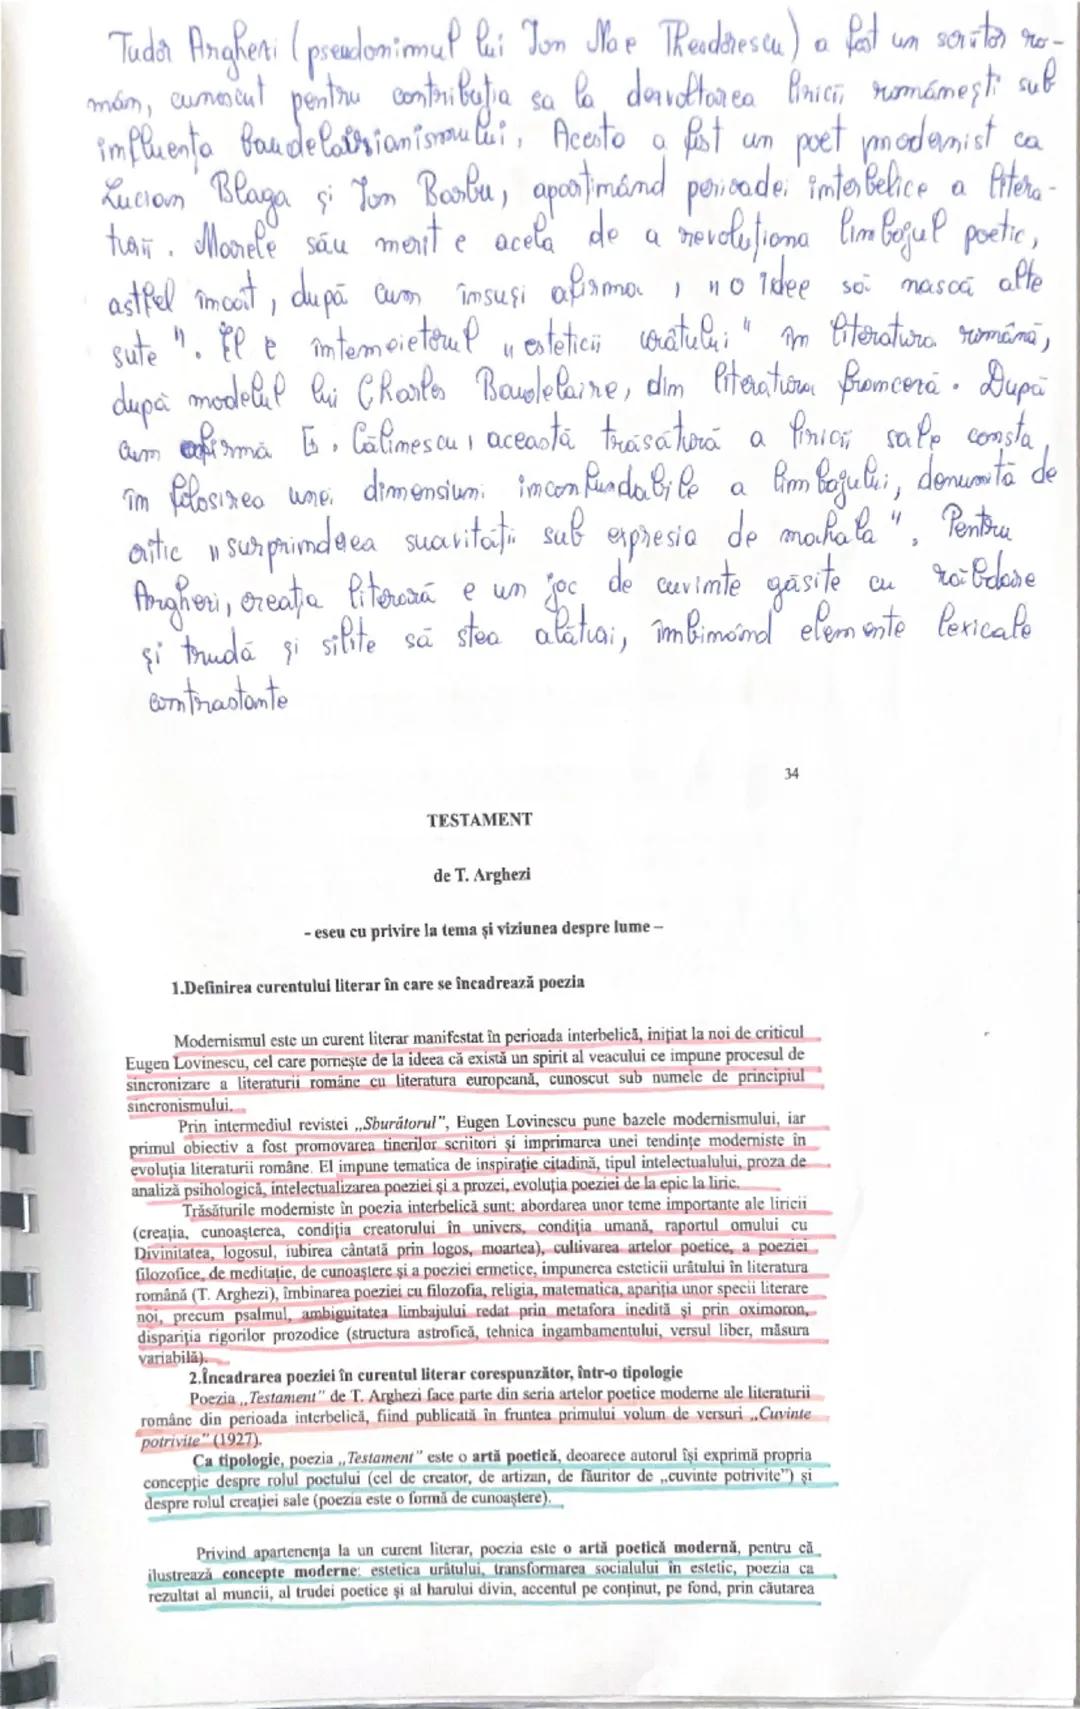 Tudor Argheri (pseudonimul lui Ion Nae Theodorescu) a fost un scriitor ro-
mân, cunoscut pentru contribuția sa la dezvoltarea liricii românești sub
influența baudelairianismului. Acesta a fost un poet modernist ca
Lucian Blaga și Ion Barbu, aparținând perioadei interbelice a litera-
turii. Marele său merit e acela de a revoluționa limbajul poetic,
astfel încât, după cum însuși afirma, "o idee să nască alte
sute". El e întemeietorul "esteticii urâtului" în literatura română,
după modelul lui Charles Baudelaire, din literatura franceză. După
cum afirmă G. Călinescu, această trăsătură a liricii sale consta
în folosirea unei dimensiuni inconfundabile a limbajului, denumită de
critic "surprinderea suavității sub expresia de mahala". Pentru
Argheri, creația literară e un joc de cuvinte găsite cu răbdare
și trudă și silite să stea alături, îmbinând elemente lexicale
contrastante
34
TESTAMENT
de T. Arghezi
- eseu cu privire la tema și viziunea despre lume –
1.Definirea curentului literar în care se încadrează poezia
Modernismul este un curent literar manifestat în perioada interbelică, inițiat la noi de criticul
Eugen Lovinescu, cel care pornește de la ideea că există un spirit al veacului ce impune procesul de
sincronizare a literaturii române cu literatura europeană, cunoscut sub numele de principiul
sincronismului.
Prin intermediul revistei „Sburătorul", Eugen Lovinescu pune bazele modernismului, iar
primul obiectiv a fost promovarea tinerilor scriitori și imprimarea unei tendințe moderniste în
evoluția literaturii române. El impune tematica de inspirație citadină, tipul intelectualului, proza de
analiză psihologică, intelectualizarea poeziei și a prozei, evoluția poeziei de la epic la liric.
Trăsăturile moderniste în poezia interbelică sunt: abordarea unor teme importante ale liricii
(creația, cunoașterea, condiția creatorului în univers, condiția umană, raportul omului cu
Divinitatea, logosul, iubirea cântată prin logos, moartea), cultivarea artelor poetice, a poeziei
filozofice, de meditație, de cunoaștere și a poeziei ermetice, impunerea esteticii urâtului în literatura
română (T. Arghezi), îmbinarea poeziei cu filozofia, religia, matematica, apariția unor specii literare
noi, precum psalmul, ambiguitatea limbajului redat prin metafora inedită și prin oximoron,
dispariția rigorilor prozodice (structura astrofică, tehnica ingambamentului, versul liber, măsura
variabilă).
2.Încadrarea poeziei în curentul literar corespunzător, într-o tipologie
Poezia „Testament" de T. Arghezi face parte din seria artelor poetice moderne ale literaturii
române din perioada interbelică, fiind publicată în fruntea primului volum de versuri „Cuvinte
potrivite" (1927).
Ca tipologie, poezia „Testament" este o artă poetică, deoarece autorul își exprimă propria
concepție despre rolul poetului (cel de creator, de artizan, de făuritor de „cuvinte potrivite") și
despre rolul creației sale (poezia este o formă de cunoaștere).
Privind apartenența la un curent literar, poezia este o artă poetică modernă, pentru că
ilustrează concepte moderne: estetica urâtului, transformarea socialului în estetic, poezia ca
rezultat al muncii, al trudei poetice și al harului divin, accentul pe conținut, pe fond, prin căutarea